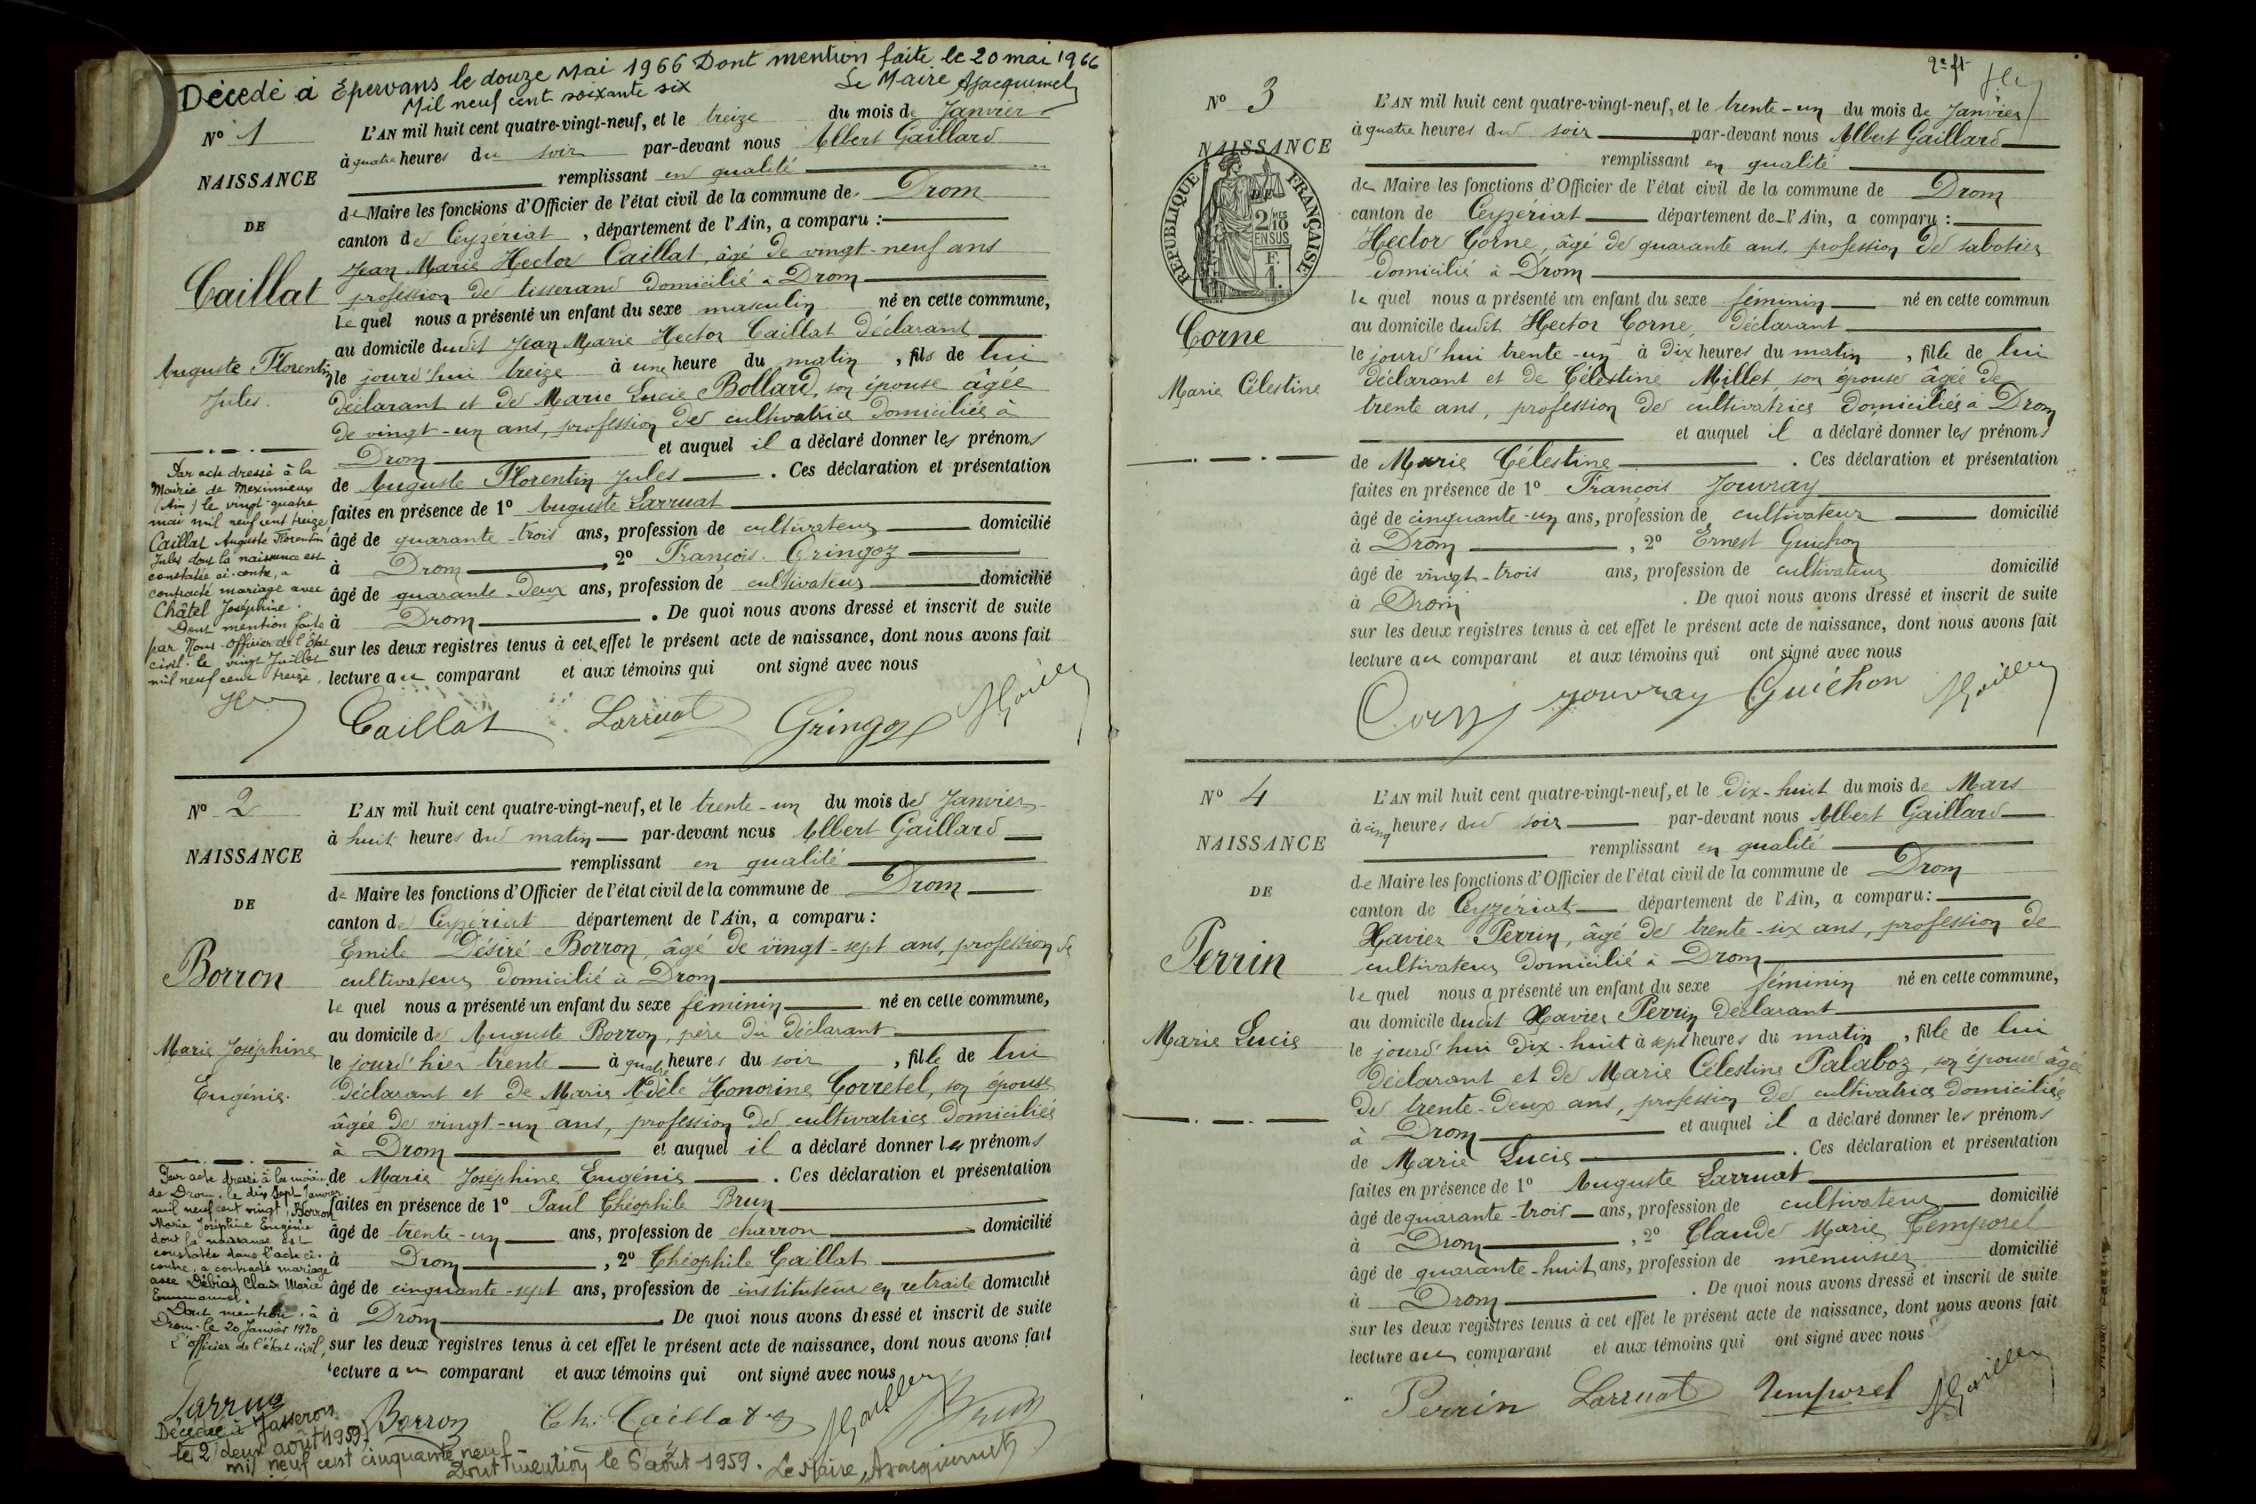 Décédé à Epervans le douze Mai 1966 Dont mention faite le 20 mai 1966
Mil neuf cent soixante six Le Maire AJacquemet
N° 1
NAISSANCE
DE
Caillat
Auguste Florentin
Jules.
L'AN mil huit cent quatre-vingt-neuf, et le treize du mois de Janvier
à quatre heures du soir par-devant nous Albert Gaillard
remplissant en qualité
de Maire les fonctions d'Officier de l'état civil de la commune de Drom
canton de Ceyzériat, département de l'Ain, a comparu :
Jean Marie Hector Caillat, âgé de vingt-neuf ans
profession de tisserand domicilié à Drom
le quel nous a présenté un enfant du sexe masculin né en cette commune,
au domicile dudit Jean Marie Hector Caillat déclarant
le jourd'hui treize à une heure du matin, fils de lui
déclarant et de Marie Lucie Bollard, son épouse âgée
de vingt-un ans, profession de cultivatrice domiciliée à
Drom et auquel il a déclaré donner les prénoms
de Auguste Florentin Jules. Ces déclaration et présentation
faites en présence de 1° Auguste Larruat
âgé de quarante-trois ans, profession de cultivateur domicilié
à Drom, 2° François Gringoz
âgé de quarante-deux ans, profession de cultivateur domicilié
à Drom. De quoi nous avons dressé et inscrit de suite
sur les deux registres tenus à cet effet le présent acte de naissance, dont nous avons fait
lecture au comparant et aux témoins qui ont signé avec nous
Caillat Larruat Gringoz AGaillard
Par acte dressé à la
Mairie de Meximieux
(Ain) le vingt-quatre
mai mil neuf cent treize,
Caillat Auguste Florentin
Jules dont la naissance est
constatée ci-contre, a
contracté mariage avec
Châtel Joséphine.
Dont mention faite
par Nous-Officier de l'Etat
civil. le vingt Juillet
mil neuf cent treize.
N° 2
NAISSANCE
DE
Borron
Marie Joséphine
Eugénie.
L'AN mil huit cent quatre-vingt-neuf, et le trente-un du mois de Janvier
à huit heures du matin par-devant nous Albert Gaillard
remplissant en qualité
de Maire les fonctions d'Officier de l'état civil de la commune de Drom
canton de Ceyzériat département de l'Ain, a comparu :
Emile Désiré Borron, âgé de vingt-sept ans, profession de
cultivateur domicilié à Drom
le quel nous a présenté un enfant du sexe féminin né en cette commune,
au domicile de Auguste Borron, père du déclarant
le jourd'hier trente à quatre heures du soir, fille de lui
déclarant et de Marie Adèle Honorine Corretel, son épouse
âgée de vingt-un ans, profession de cultivatrice domiciliée
à Drom et auquel il a déclaré donner les prénoms
de Marie Joséphine Eugénie. Ces déclaration et présentation
faites en présence de 1° Paul Théophile Brun
âgé de trente-un ans, profession de charron domicilié
à Drom, 2° Théophile Caillat
âgé de cinquante-sept ans, profession de instituteur en retraite domicilié
à Drom. De quoi nous avons dressé et inscrit de suite
sur les deux registres tenus à cet effet le présent acte de naissance, dont nous avons fait
lecture au comparant et aux témoins qui ont signé avec nous
Par acte dressé à la mairie
de Drom, le dix sept Janvier
mil neuf cent vingt, Borron
Marie Joséphine Eugénie
dont la naissance est
constatée dans l'acte ci-
contre, a contracté mariage
avec Débiat Clair Marie
Emmanuel.
Dont mention à
Drom. le 20 Janvier 1920
L'officier de l'état civil,
Larruat
Borron Th. Caillat AGaillard Brun
Décédée à Jasseron
le 2 (deux août 1959)
mil neuf cent cinquante neuf-
Dont mention le 6 août 1959. Le Maire, AJacquemet
2e ft
N° 3
NAISSANCE
RÉPUBLIQUE FRANÇAISE
2/10 EN SUS
F. 1.
Corne
Marie Célestine
L'AN mil huit cent quatre-vingt-neuf, et le trente-un du mois de Janvier
à quatre heures du soir par-devant nous Albert Gaillard
remplissant en qualité
de Maire les fonctions d'Officier de l'état civil de la commune de Drom
canton de Ceyzériat département de l'Ain, a comparu :
Hector Corne, âgé de quarante ans, profession de sabotier
domicilié à Drom
le quel nous a présenté un enfant du sexe féminin né en cette commun
au domicile dudit Hector Corne, déclarant
le jourd'hui trente-un à dix heures du matin, fille de lui
déclarant et de Célestine Millet, son épouse âgée de
trente ans, profession de cultivatrice domiciliée à Drom
et auquel il a déclaré donner les prénoms
de Marie Célestine. Ces déclaration et présentation
faites en présence de 1° François Jouvray
âgé de cinquante-un ans, profession de cultivateur domicilié
à Drom, 2° Ernest Guichon
âgé de vingt-trois ans, profession de cultivateur domicilié
à Drom. De quoi nous avons dressé et inscrit de suite
sur les deux registres tenus à cet effet le présent acte de naissance, dont nous avons fait
lecture au comparant et aux témoins qui ont signé avec nous
Corne Jouvray Guichon AGaillard
N° 4
NAISSANCE
DE
Perrin
Marie Lucie
L'AN mil huit cent quatre-vingt-neuf, et le dix-huit du mois de Mars
à cinq heures du soir par-devant nous Albert Gaillard
remplissant en qualité
de Maire les fonctions d'Officier de l'état civil de la commune de Drom
canton de Ceyzériat département de l'Ain, a comparu :
Xavier Perrin, âgé de trente-six ans, profession de
cultivateur domicilié à Drom
le quel nous a présenté un enfant du sexe féminin né en cette commune,
au domicile dudit Xavier Perrin déclarant
le jourd'hui dix-huit à sept heures du matin, fille de lui
déclarant et de Marie Célestine Palaboz, son épouse âgée
de trente-deux ans, profession de cultivatrice domiciliée
à Drom et auquel il a déclaré donner les prénoms
de Marie Lucie. Ces déclaration et présentation
faites en présence de 1° Auguste Larruat
âgé de quarante-trois ans, profession de cultivateur domicilié
à Drom, 2° Claude Marie Temporel
âgé de quarante-huit ans, profession de menuisier domicilié
à Drom. De quoi nous avons dressé et inscrit de suite
sur les deux registres tenus à cet effet le présent acte de naissance, dont nous avons fait
lecture au comparant et aux témoins qui ont signé avec nous
Perrin Larruat Temporel AGaillard